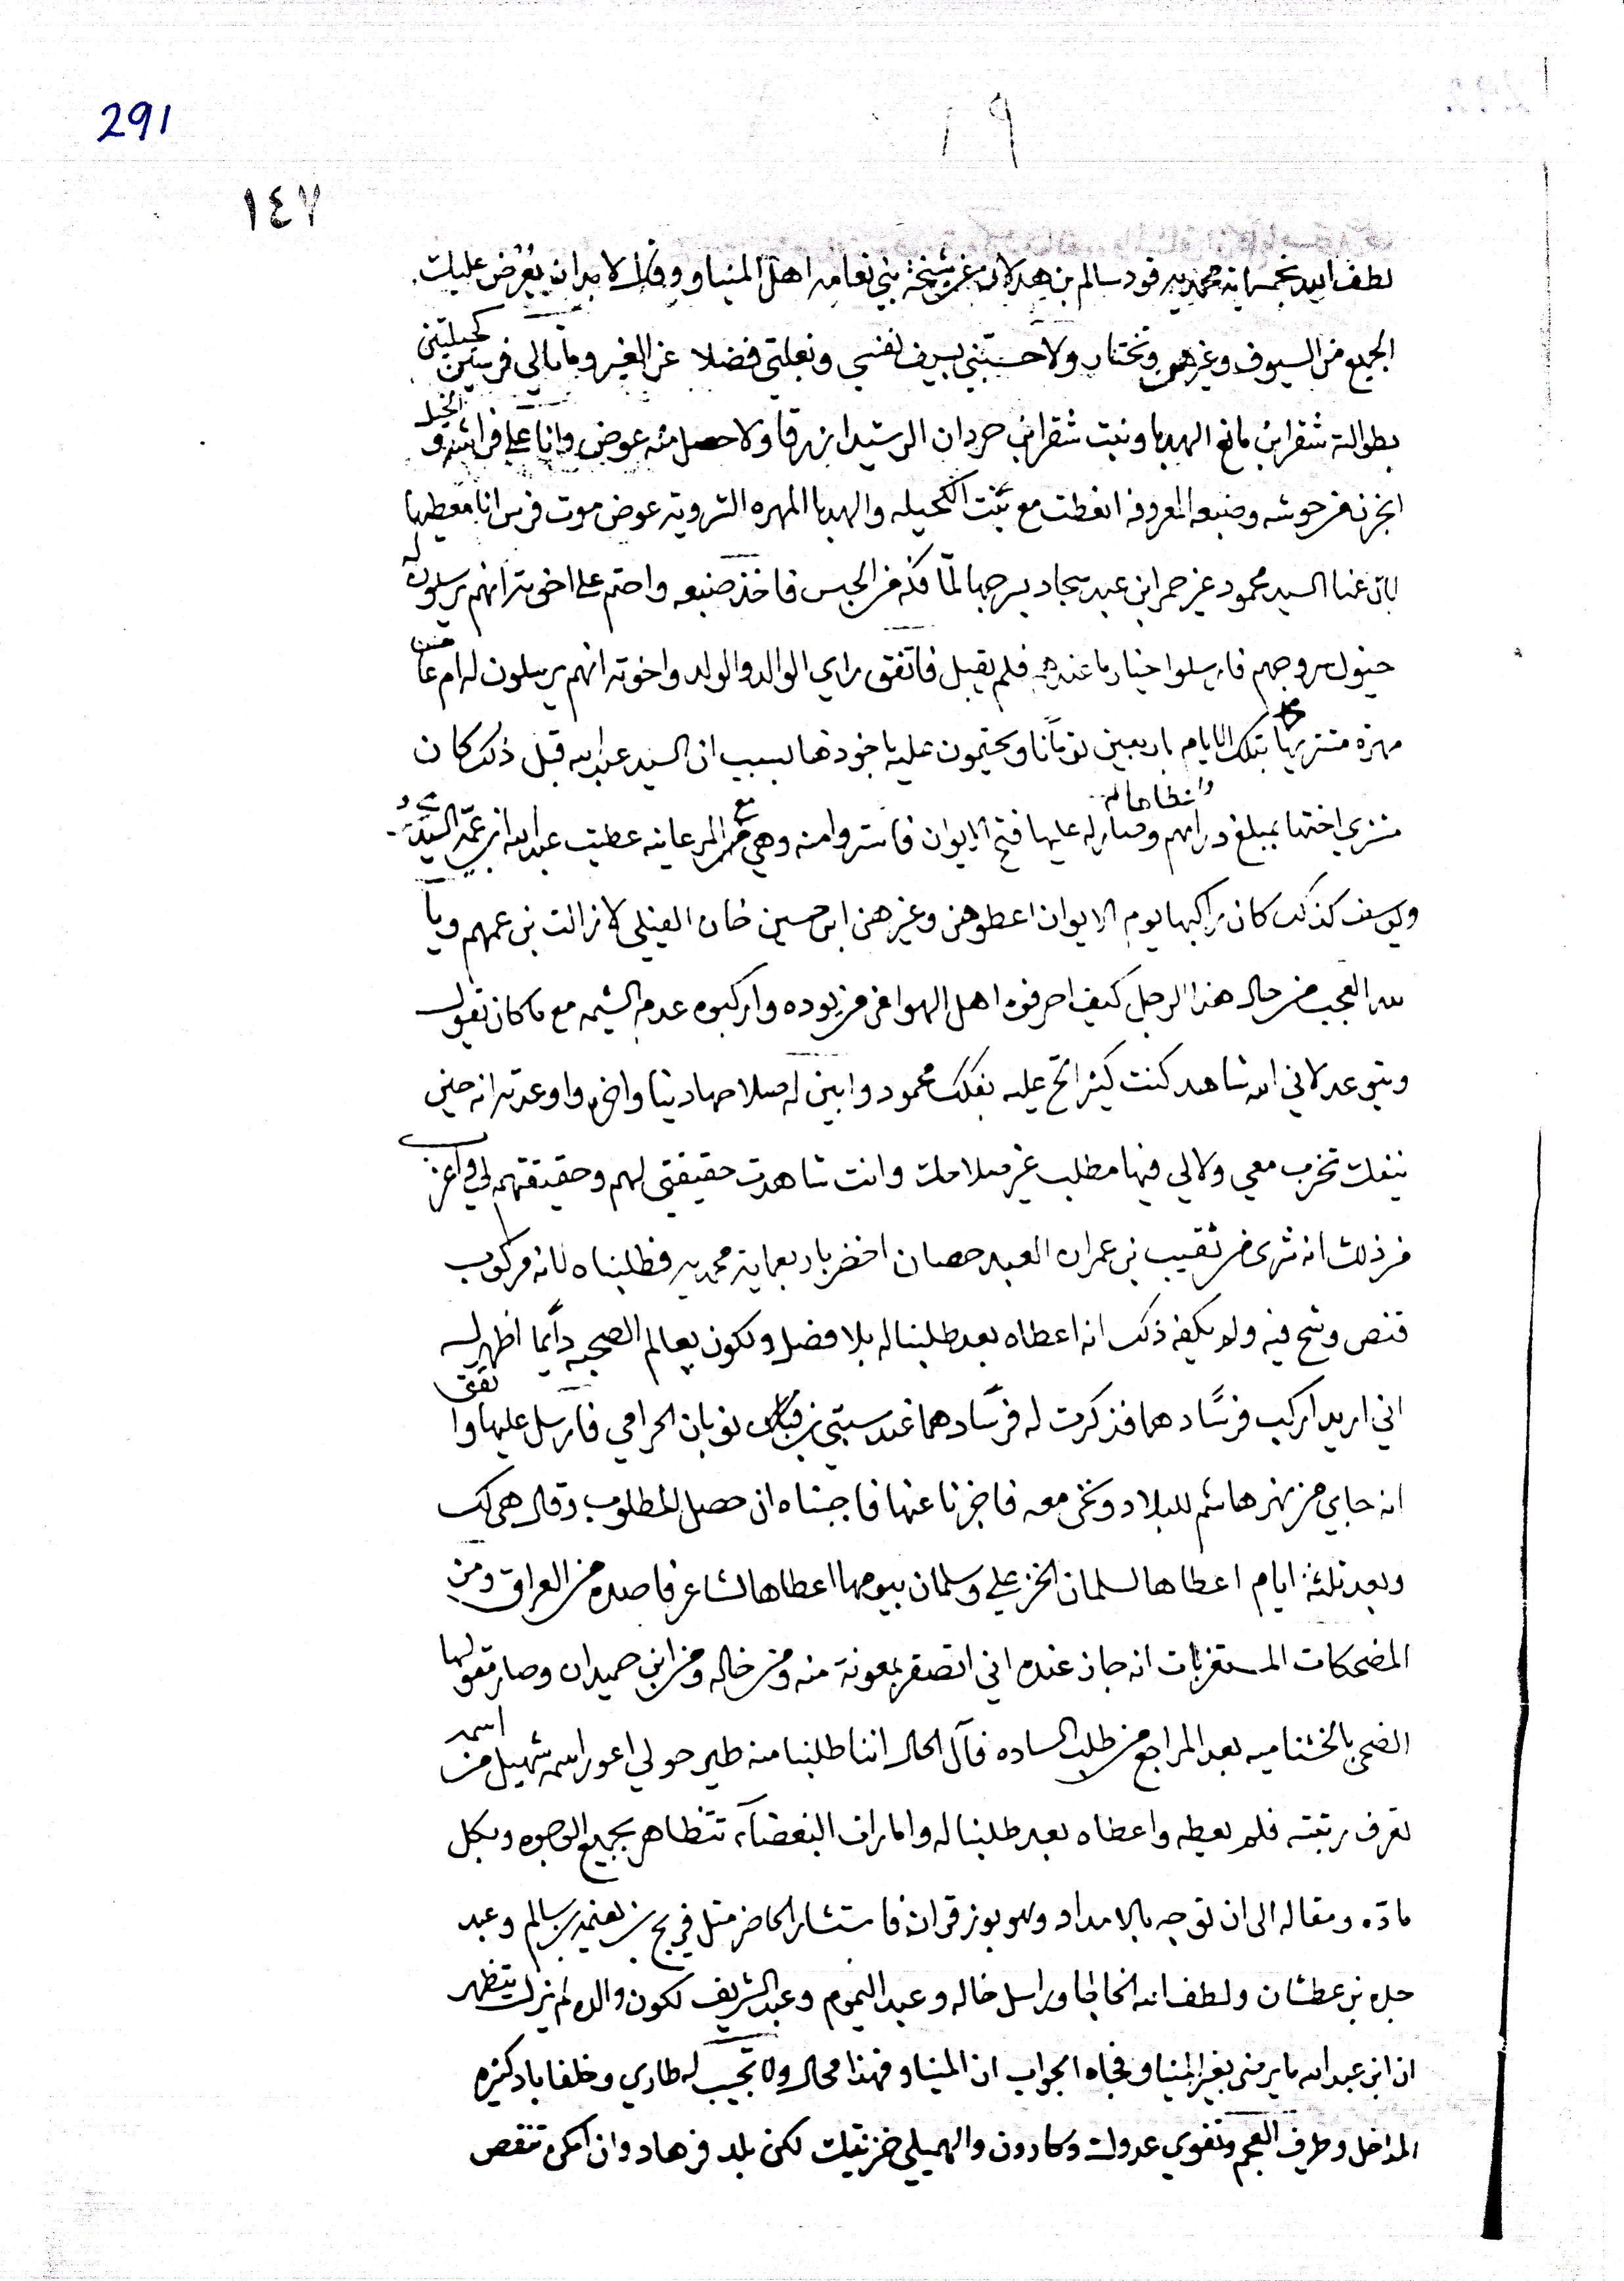 291
١٩
١٤٧
لطف الله بخمسماية محمديه قود سالم بن هدلان عن شيخة بني نعامه اهل المنياو وقال لا بد ان يعرض عليك
الجميع من السيوف وغيرهن وتختار ولا حسبتني بسيف لنفسي ونعلتي فضلا عن الغير وما بالي فرسين كحيلتين
بطوالة شقرا بن مانع الهدبا وبنت شقرا بن حردان الرشيد ا زرقا ولا حصل منه عوض وانا على فراشه و الخيل
انجزن من حوشه وضبعه المعروفه انعطت مع بنت الكحيله والهدبا المهره الثرويه عوض موت فرس انا معطيها
بان عنا السيد محمود عن حمرا بن عبد سجاد يسرجها لما فكه من الحبس فاخذ ضبعه واحتم على اخوته انهم يرسلون له
خيول سروجهم فارسلوا خيار ما عندهم فلم يقبل فاتفق راي الوالد والولد واخوته انهم يرسلون له ام عا
مهرة مشتريها بتلك الايام باربعين تومانا ويحتمون عليه ياخوذها بسبب ان السيد عبد الله قبل ذلك كان
مشتري اختها بمبلغ دراهم وصار له عليها فتح الايوان فاشتروا منه وهي مع المرعاينه عطيت عبد الله ابن عمه السيد
وانطاها له
ويوسف كذلك كان راكبها يوم الايوان اعطوهن وغيرهن ابن حسين خان الفيلي لا زالت بن عمهم ويا
لله العجب من حال هذا الرجل كيف احرفوه اهل الهوا عن من يوده واركبوه عدم الشيمه مع ما كان يقول
ويتوعد لاني الله شاهد كنت كثير الح عليه بفكك محمود وابين له صلاحها دينا واخره واوعدته انه حين
ينفك تخرب معي ولا لي فيها مطلب غير صلاحك وانت شاهدت حقيقتي لهم وحقيقتهم لي واغرب
من ذلك انه شرى من نقيب بن عمران العبد حصان اخضر باربعماية محمديه فطلبناه لانه مركوب
قنص وشح فيه ولم يكفه ذلك انه اعطاه بعد طلبنا له بلا فضل ونكون بعالم الصحبه دايما اظهر له
اني اريد اركب فرسا دهما فذكرت له فرسا دهما عند سبتي بن نوبان الحرامي فارسل عليها واتفق
انه جابي من نهر هاشم للبلاد ونحن معه فاخبرنا عنها فاجبناه ان حصل المطلوب وقال هي لك
وبعد ثلثة ايام اعطاها لسلمان الخزعلي وسلمان بيومها اعطاها لشاعر قاصده من العراق ومن
المضحكات المستغربات انه جاز عنده اني اتصقر بمعونة منه ومن خاله ومن ابن حميدان وصار مقولها
الضحى بالخشناميه بعد المراجع من طلب الساده فآل الحال اننا طلبنا منه طير حولي اعور اسمه شهيل من اسمه
تعرف رتبته فلم يعطه واعطاه بعد طلبنا له وامارات البغضاء تتظاهر بجميع الوجوه وبكل
مادة ومقاله الى ان توجه بالامداد وهو بوزقران فاستشار الحاضر مثل فريح بن نعيمه بن سالم وعبد
جله بن عطشان ولطف الله الخالجا وراسل خاله وعبد اليموم وعبد الشريف لكون والده لم يزل يتظهر
ان ابن عبد الله ما يرضى بغير المنياو فجاه الجواب ان المنياو فهذا محال ولا تجيب له طاري وخلفاباد كثيره
المداخل وطرف العجم وتقوي عدوك وكارون والهميلي خزنتك لكن بلد فرهاد وان امكن تنقص